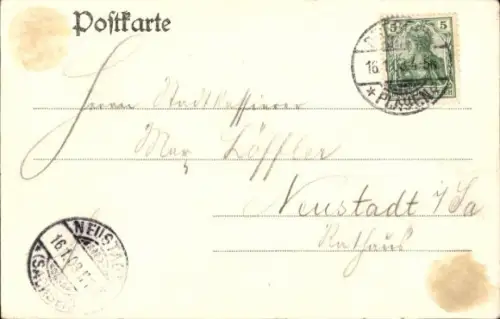 Postkarte
5
16.1.03
* PLAUEN
Herrn Stadtkassierer
Max Löffler
Neustadt i/Sa
Rathaus
NEUSTADT
16.1.03
(SACHSEN)